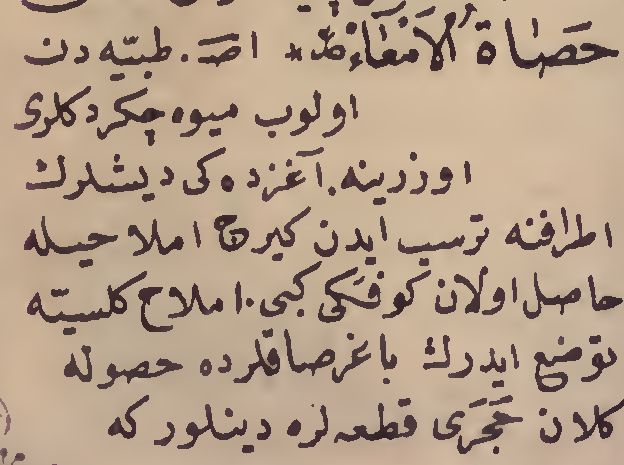 حَصَاةُ الْاَمْعَاءِ اصـ. طبيّه دن
اولوب ميوه چكردكلرى
اوزرينه. آغزده كى ديشلرك
اطرافنه ترسب ايدن كيرج املاحيله
حاصل اولان كوفكى كبى. املاح كلسيّه
توضع ايدرك باغرصاقلرده حصوله
كلان حَجَرى قطعه لره دينلور كه